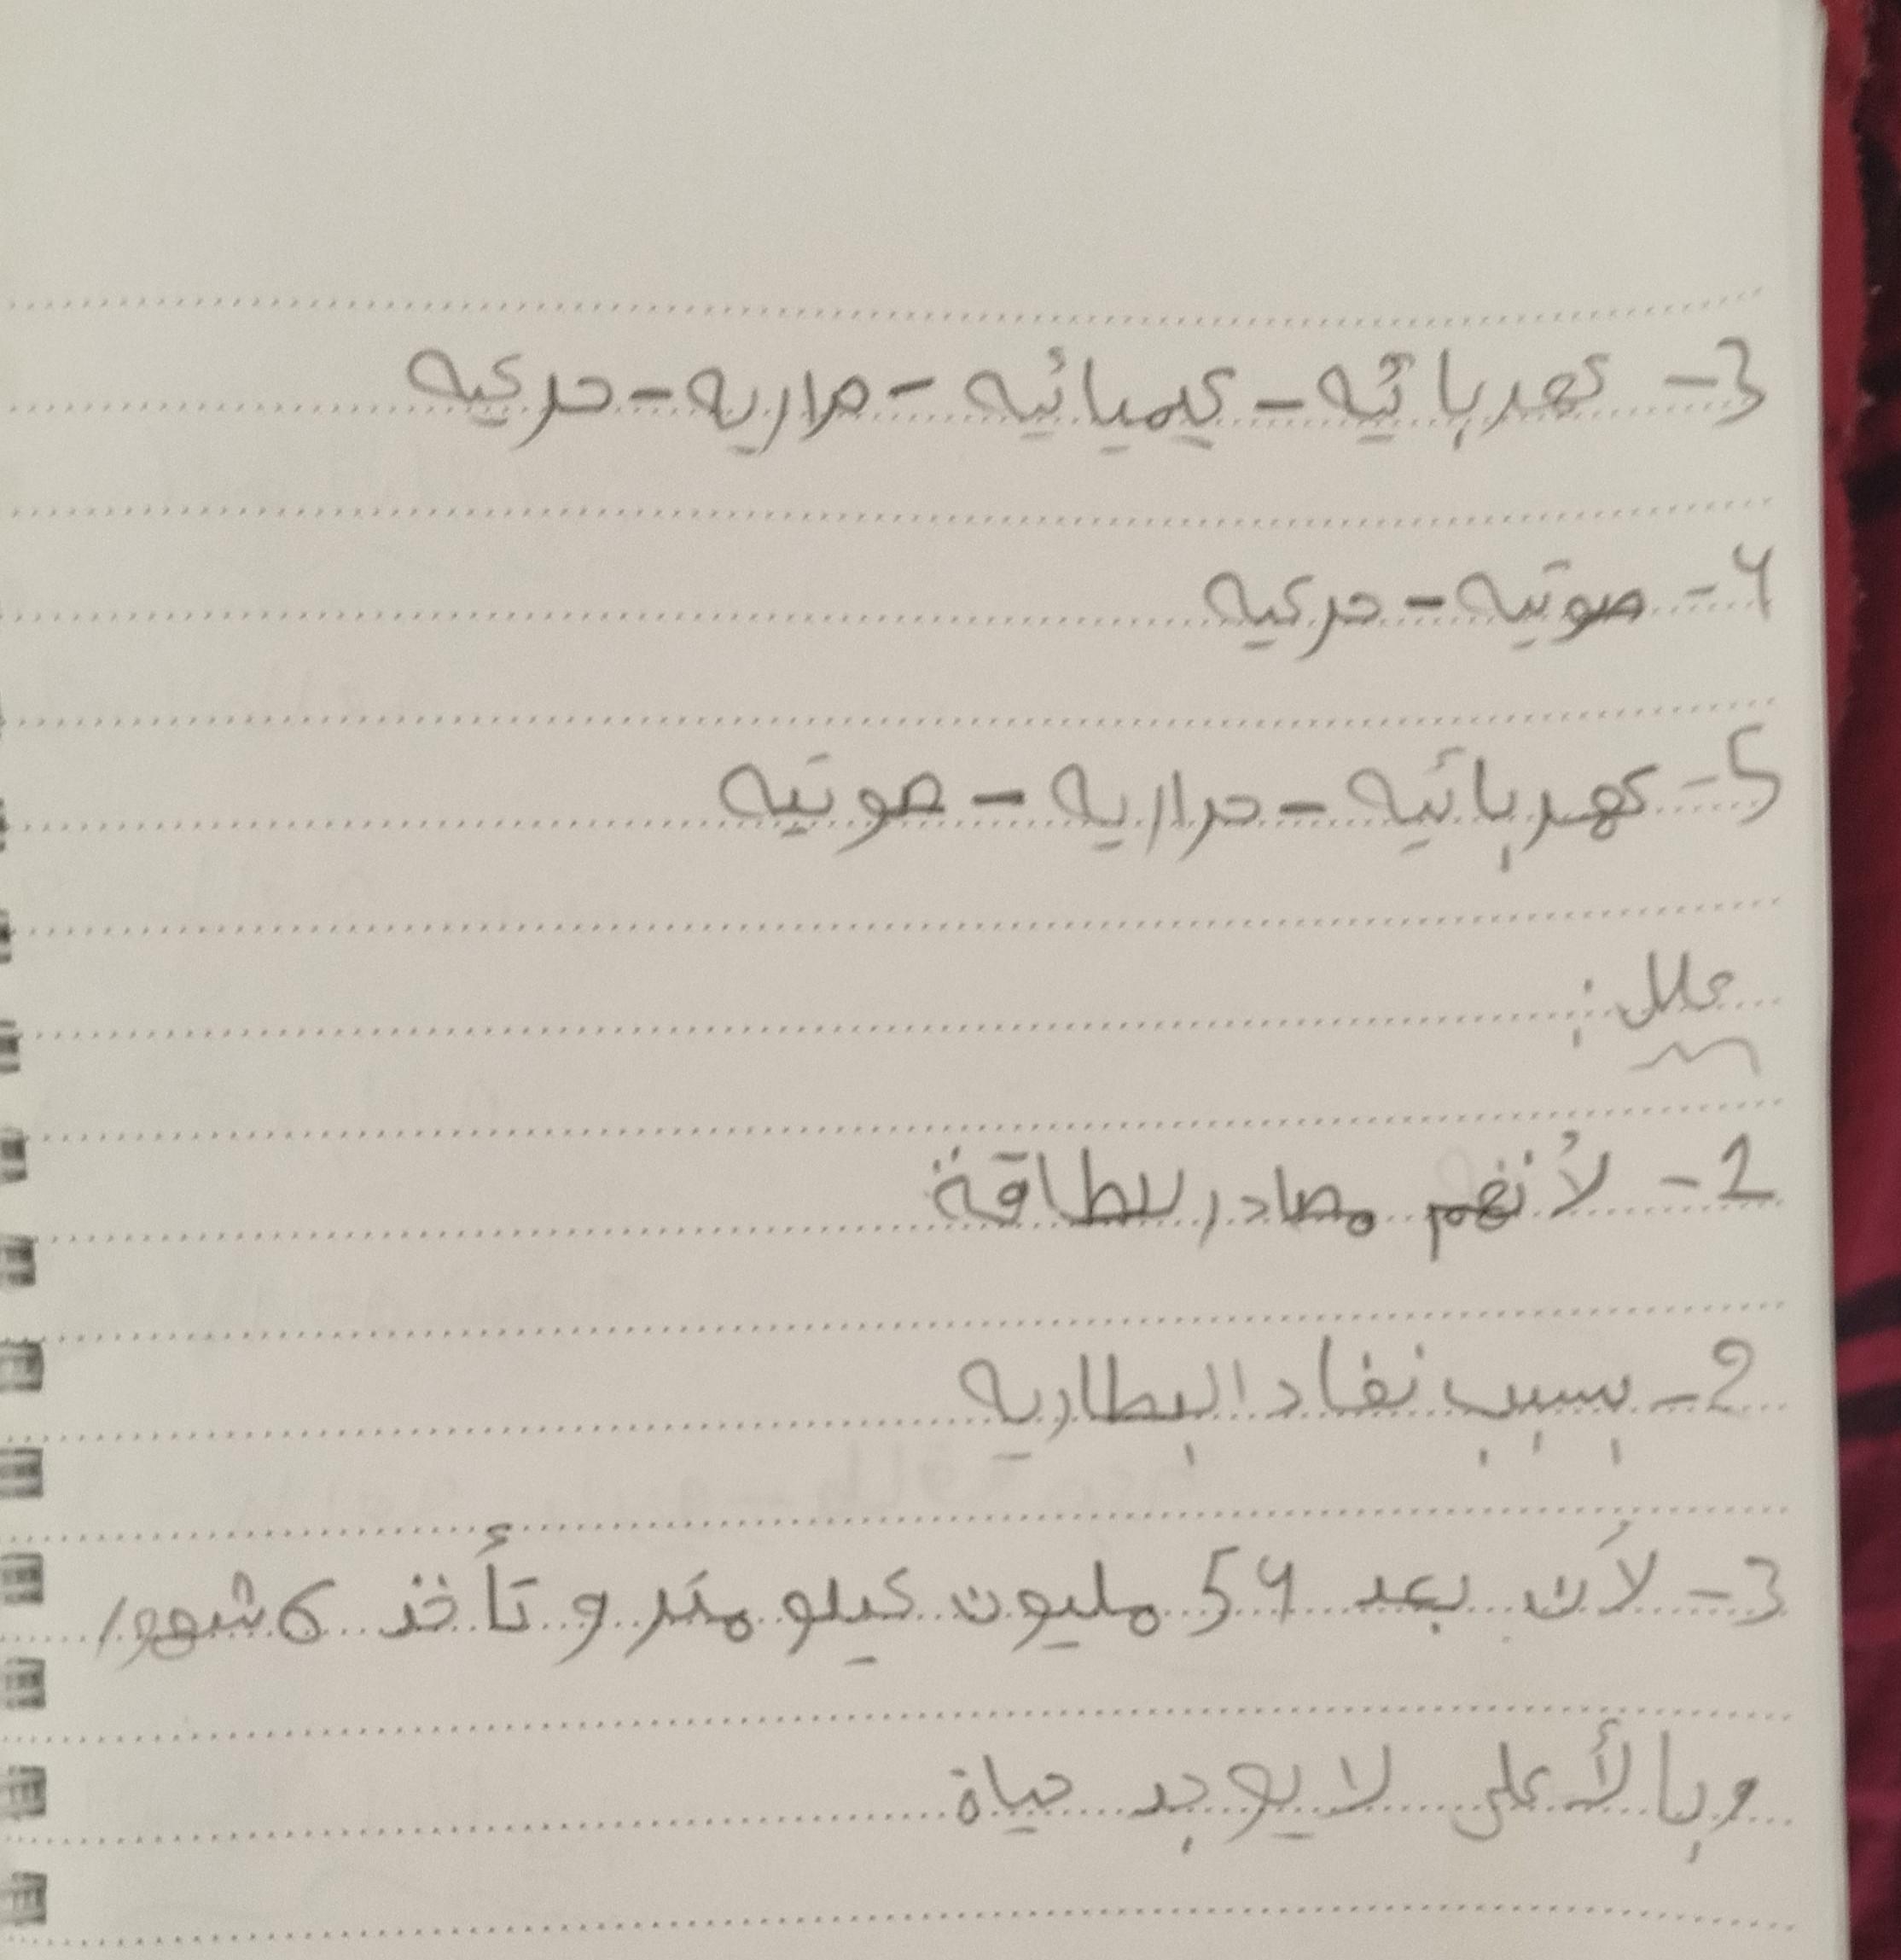 3- كهربائيه - كيميائيه - حراريه - حركيه
4- صوتيه - حركيه
5- كهربائيه - حراريه - صوتيه
علل :
1- لأنهم مصادر للطاقة
2- بسبب نفاد البطاريه
3- لأن بعد 54 مليون كيلو متر و تأخذ 6 شهور
وبالأعلى لا يوجد حياة